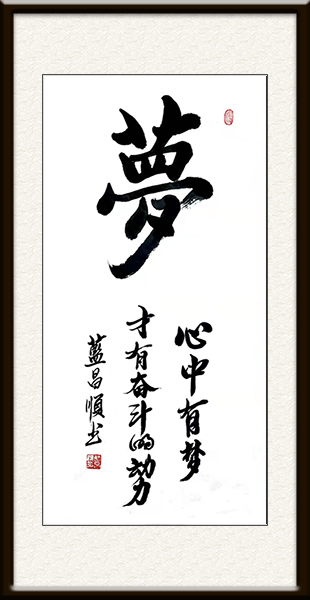 夢
心中有梦
才有奋斗的動力
藍昌順书